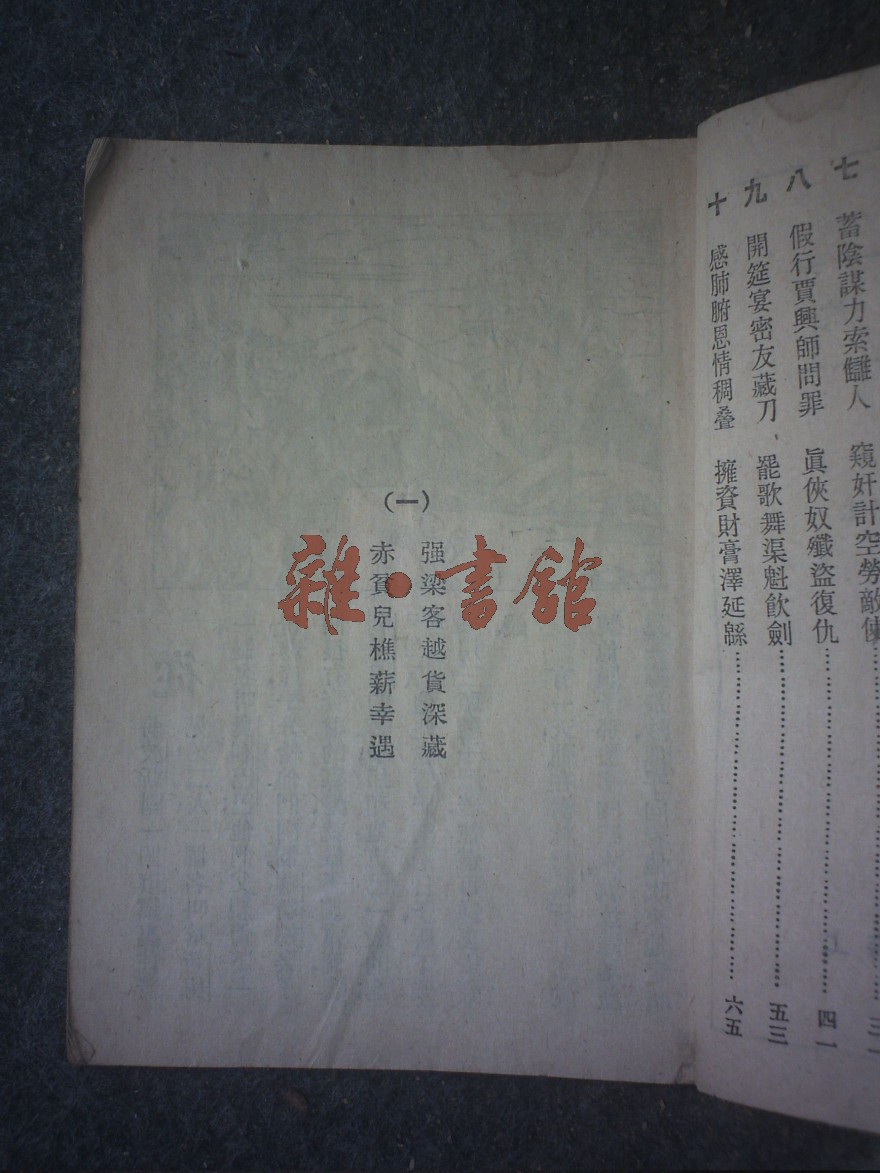 七　蓄陰謀力索讎人　窺奸計空勞敵使……三一
八　假行賈興師問罪　眞俠奴殲盜復仇……四一
九　開筵宴密友藏刀、罷歌舞渠魁飮劍……五三
十　感肺腑恩情稠叠　擁資財膏澤延緜……六五
(一)
强梁客越貨深藏
赤貧兒樵薪幸遇
雜•書館